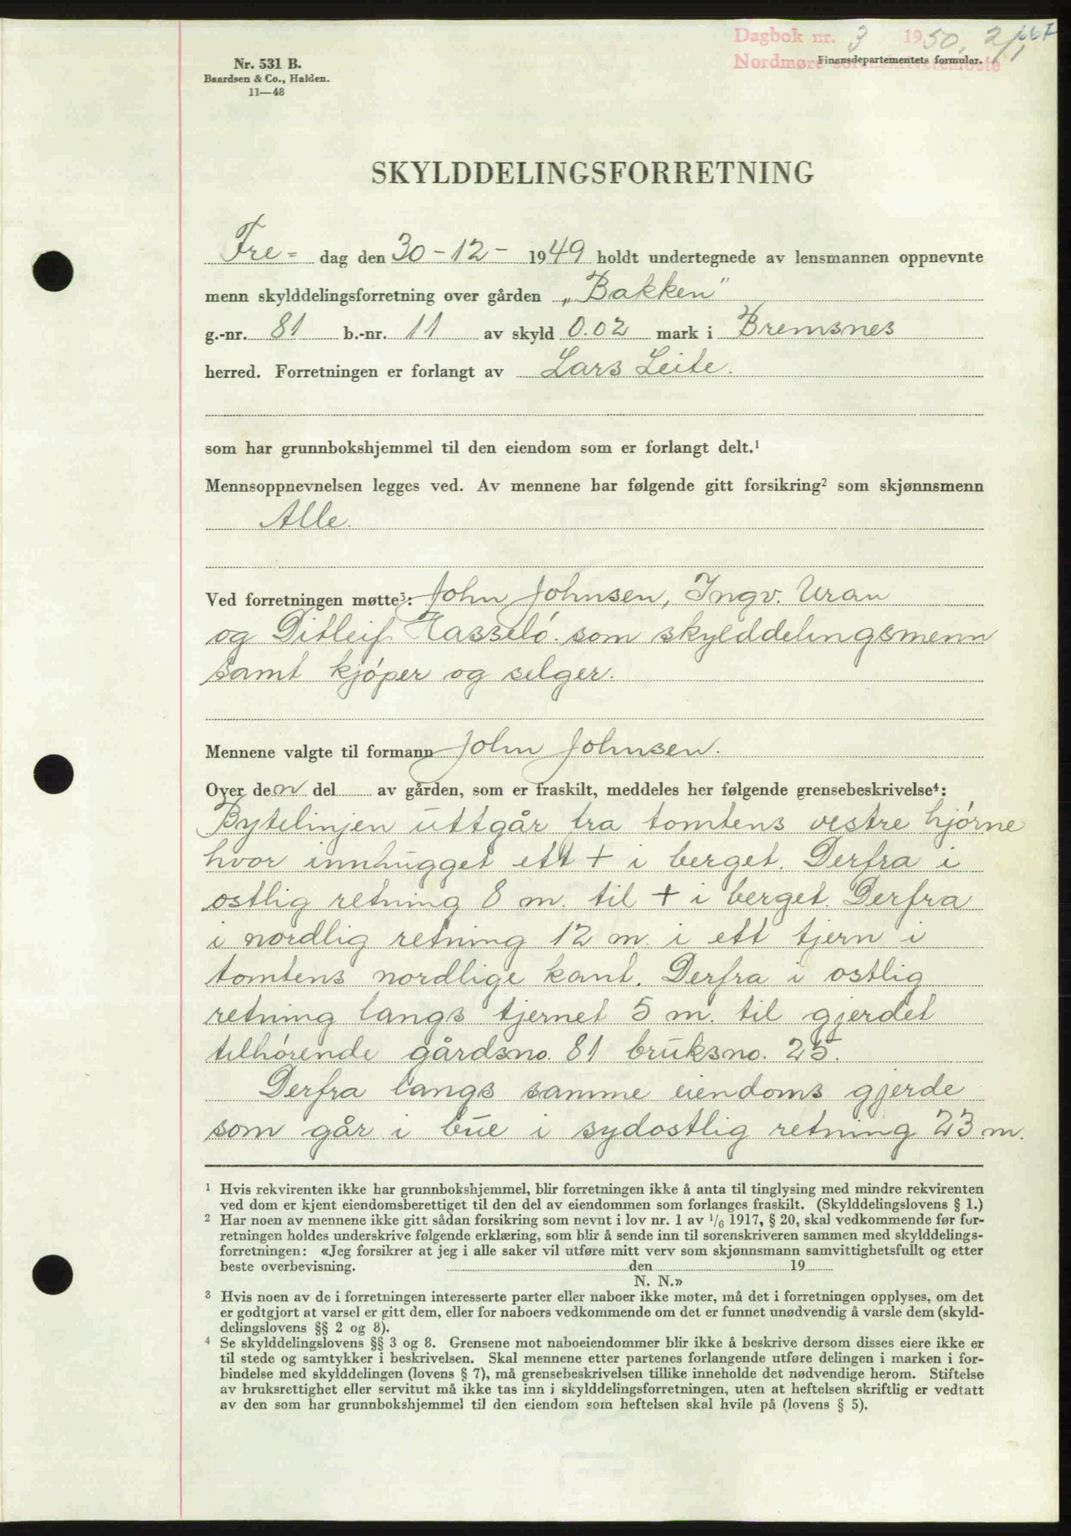 Dagbok nr. 3 1950, 2/1
Nordmøre sorenskriverembete
Nr. 531 B.
Baardsen & Co., Halden.
11—48
Finansdepartementets formular.
SKYLDDELINGSFORRETNING
Fre= dag den 30-12- 1949 holdt undertegnede av lensmannen oppnevnte
menn skylddelingsforretning over gården „Bakken"
g.-nr. 81 b.-nr. 11 av skyld 0.02 mark i Bremsnes
herred. Forretningen er forlangt av Lars Leite.
som har grunnbokshjemmel til den eiendom som er forlangt delt.¹
Mennsoppnevnelsen legges ved. Av mennene har følgende gitt forsikring² som skjønnsmenn
Alle.
Ved forretningen møtte³: John Johnsen, Ingv. Uran
og Ditleif Hasselø. som skylddelingsmenn
samt kjøper og selger.
Mennene valgte til formann John Johnsen.
Over den del av gården, som er fraskilt, meddeles her følgende grensebeskrivelse⁴:
Bytelinjen uttgår fra tomtens vestre hjørne
hvor innhugget ett + i berget. Derfra i
ostlig retning 8 m. til + i berget. Derfra
i nordlig retning 12 m. i ett tjern i
tomtens nordlige kant. Derfra i ostlig
retning langs tjernet 5 m. til gjerdet
tilhørende gårdsno. 81 bruksno. 25.
Derfra langs samme eiendoms gjerde
som går i bue i sydostlig retning 23 m.
¹ Hvis rekvirenten ikke har grunnbokshjemmel, blir forretningen ikke å anta til tinglysing med mindre rekvirenten
ved dom er kjent eiendomsberettiget til den del av eiendommen som forlanges fraskilt. (Skylddelingslovens § 1.)
² Har noen av mennene ikke gitt sådan forsikring som nevnt i lov nr. 1 av 1/6 1917, § 20, skal vedkommende før for-
retningen holdes underskrive følgende erklæring, som blir å sende inn til sorenskriveren sammen med skylddelings-
forretningen: «Jeg forsikrer at jeg i alle saker vil utføre mitt verv som skjønnsmann samvittighetsfullt og etter
beste overbevisning. den 19
N. N.»
³ Hvis noen av de i forretningen interesserte parter eller naboer ikke møter, må det i forretningen opplyses, om det
er godtgjort at varsel er gitt dem, eller for naboers vedkommende om det er funnet unødvendig å varsle dem (skyld-
delingslovens §§ 2 og 8).
⁴ Se skylddelingslovens §§ 3 og 8. Grensene mot naboeiendommer blir ikke å beskrive dersom disses eiere ikke er
til stede og samtykker i beskrivelsen. Skal mennene etter partenes forlangende utføre delingen i marken i for-
bindelse med skylddelingen (lovens § 7), må grensebeskrivelsen tillike inneholde det nødvendige herom. Stiftelse
av bruksrettighet eller servitut må ikke tas inn i skylddelingsforretningen, uten at heftelsen skriftlig er vedtatt
av den som har grunnbokshjemmel til den eiendom som heftelsen skal hvile på (lovens § 5).